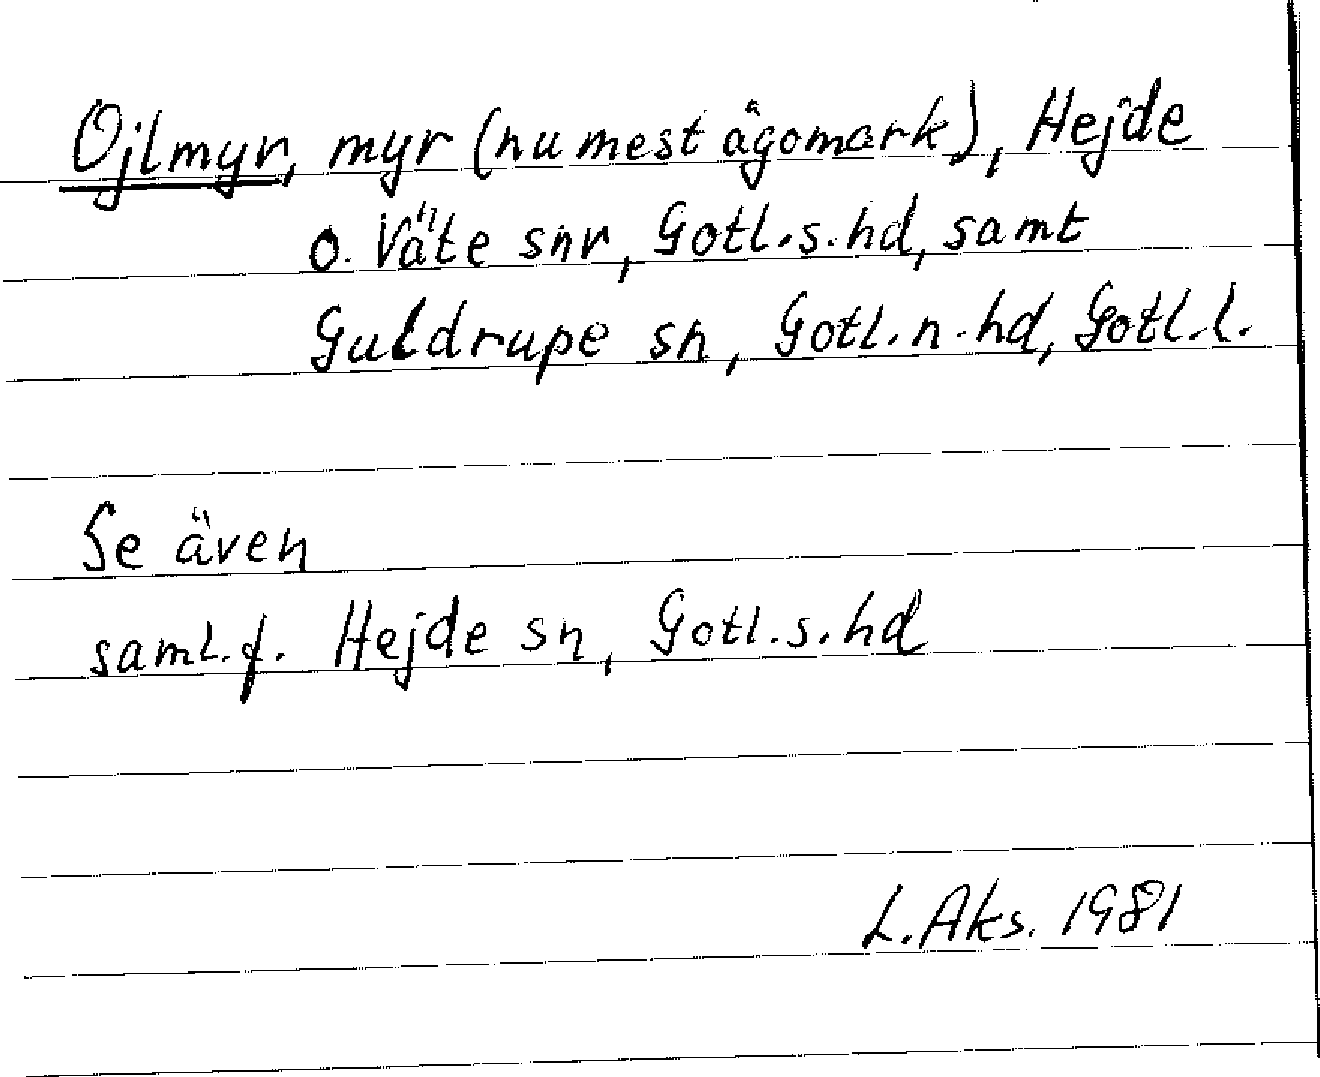 Ojlmyr, myr (nu mest ägomark), Hejde
o. Väte snr, Gotl.s.hd, samt
Guldrupe sn, Gotl.n.hd, Gotl.l.
Se även
saml.f. Hejde sn, Gotl.s.hd
L.Aks. 1981